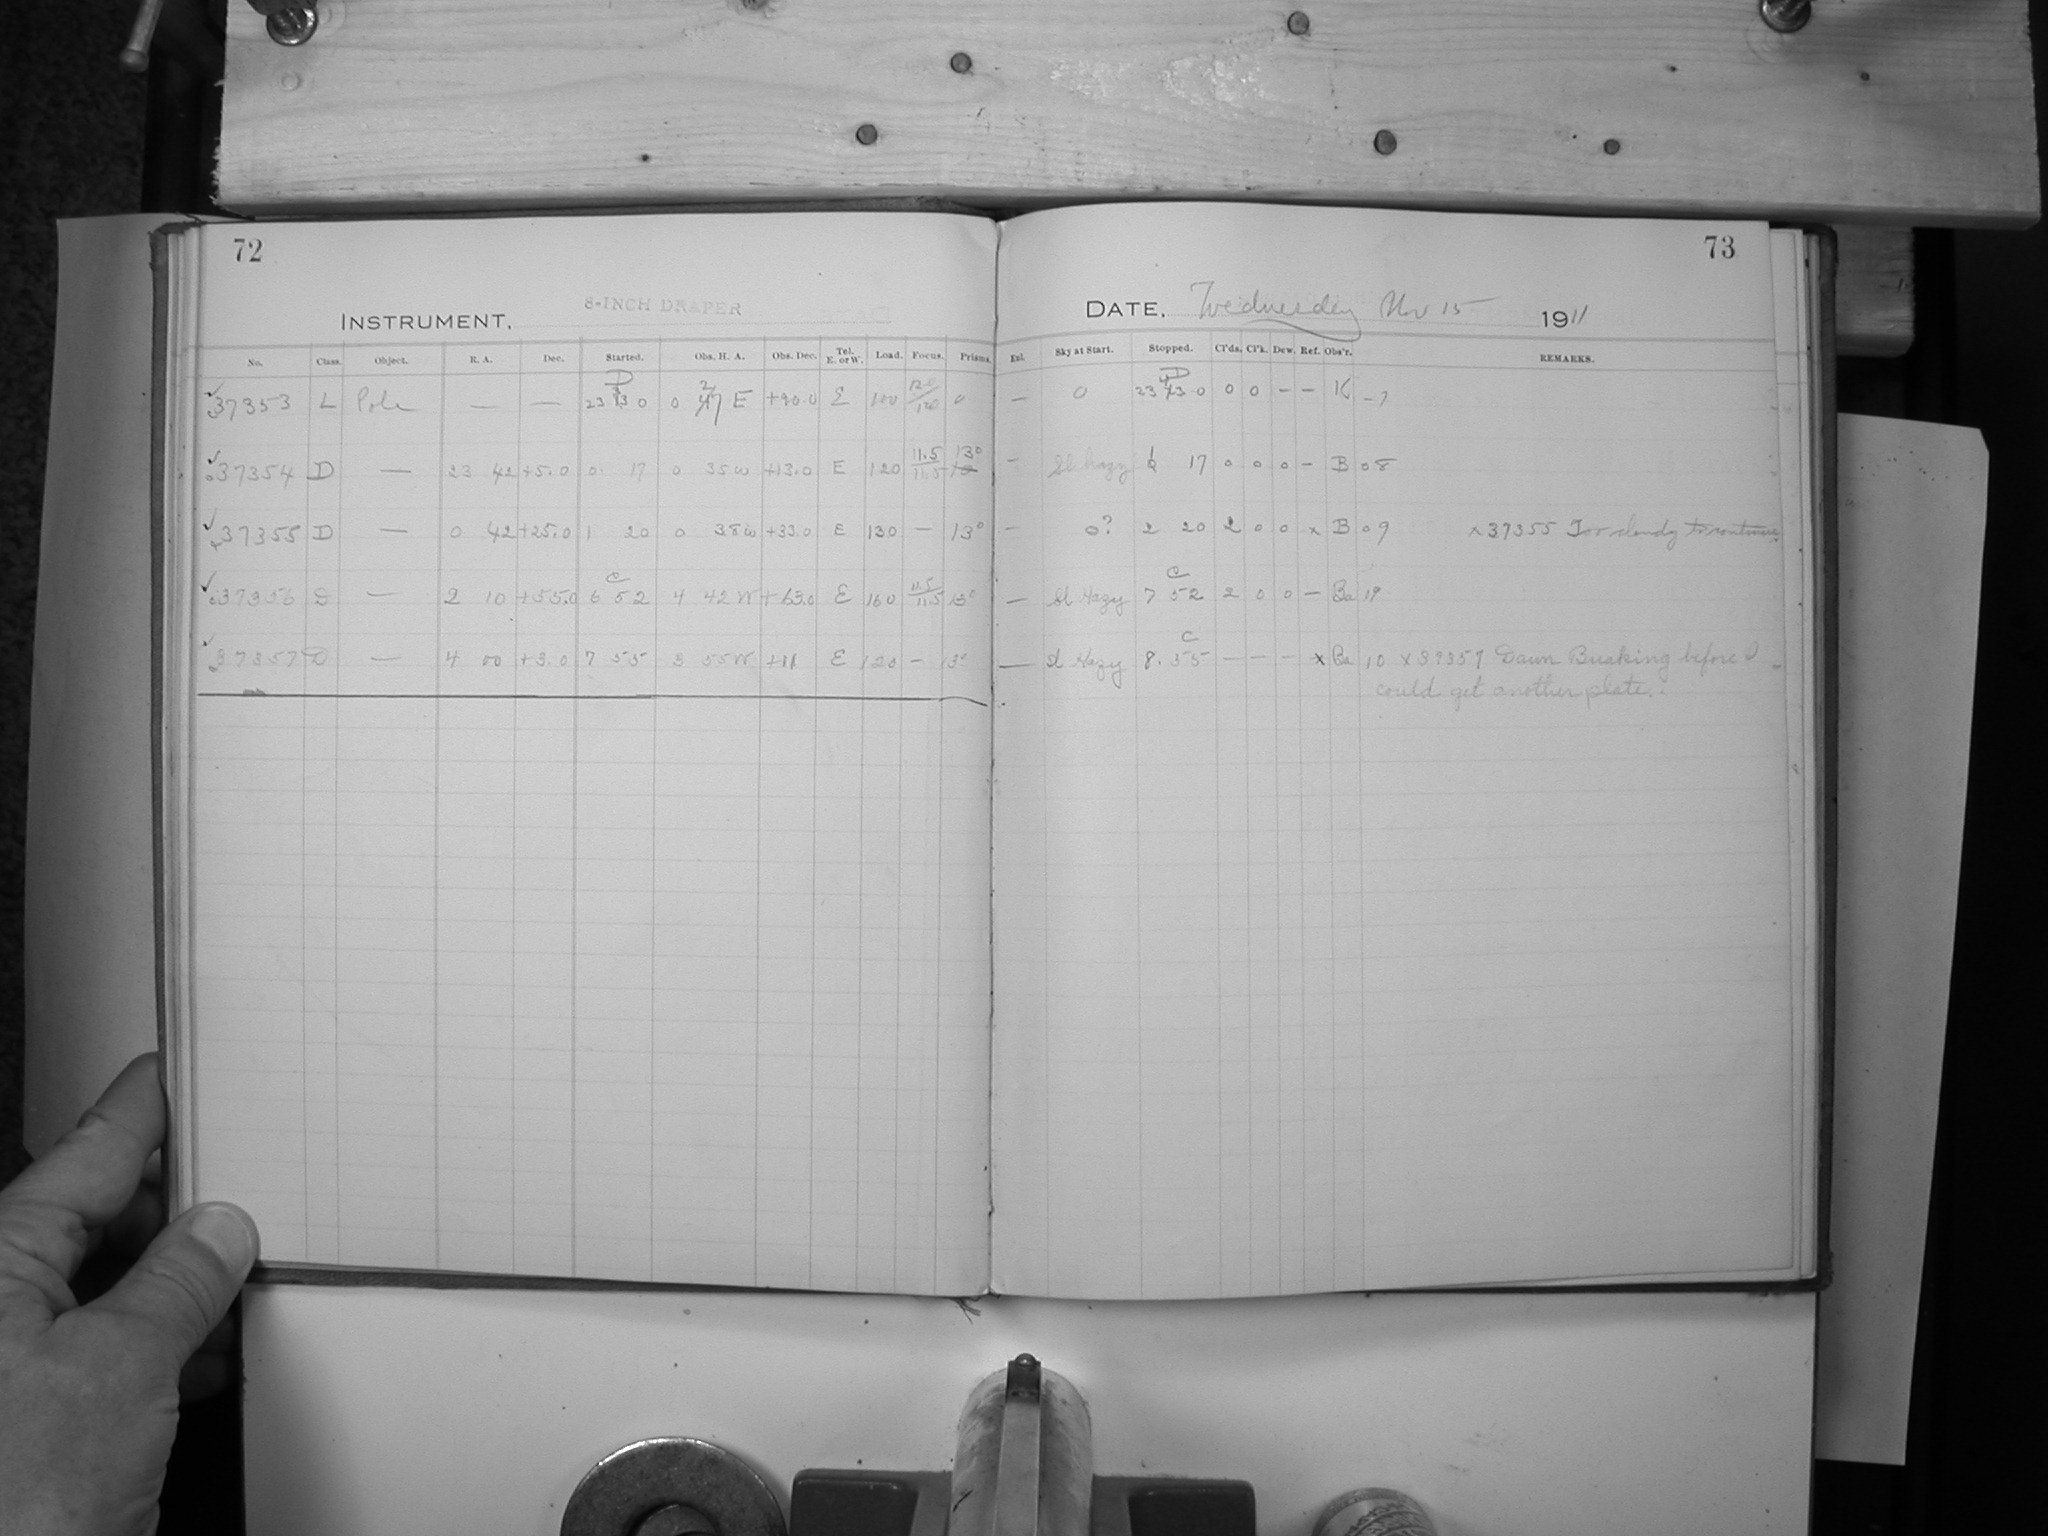 72
8-INCH DRAPER
INSTRUMENT,
No. Class. Object. R. A. Dec. Started. Obs. H. A. Obs. Dec. Tel. E. or W. Load. Focus. Prisms.
37353 L Pole — — 23 30 0 E +90.0 E 100 0
37354 D — 23 42 +5.0 0 17 0 35 W +13.0 E 120 11.5/11.5 13°
37355 D — 0 42 +25.0 1 20 0 38 W +33.0 E 130 — 13°
37356 D — 2 10 +55.0 6 52 4 42 W +63.0 E 160 11.5/11.5 13°
37357 D — 4 00 +3.0 7 55 3 55 W +11 E 120 — 13°
73
DATE, Wednesday Nov 15 1911
Exl. Sky at Start. Stopped. Cl'ds. Cl'k. Dew. Ref. Obs'r. REMARKS.
— 0 23 0 0 0 — — K
— Sl hazy 17 0 0 0 — B 08
— 0? 2 20 2 0 0 x B 09 x 37355 Too cloudy to continue
— Sl Hazy C 7 52 2 0 0 — Ba 19
— Sl Hazy C 8.55 — — — x Ba 10 x 37357 Dawn Breaking before I
could get another plate.